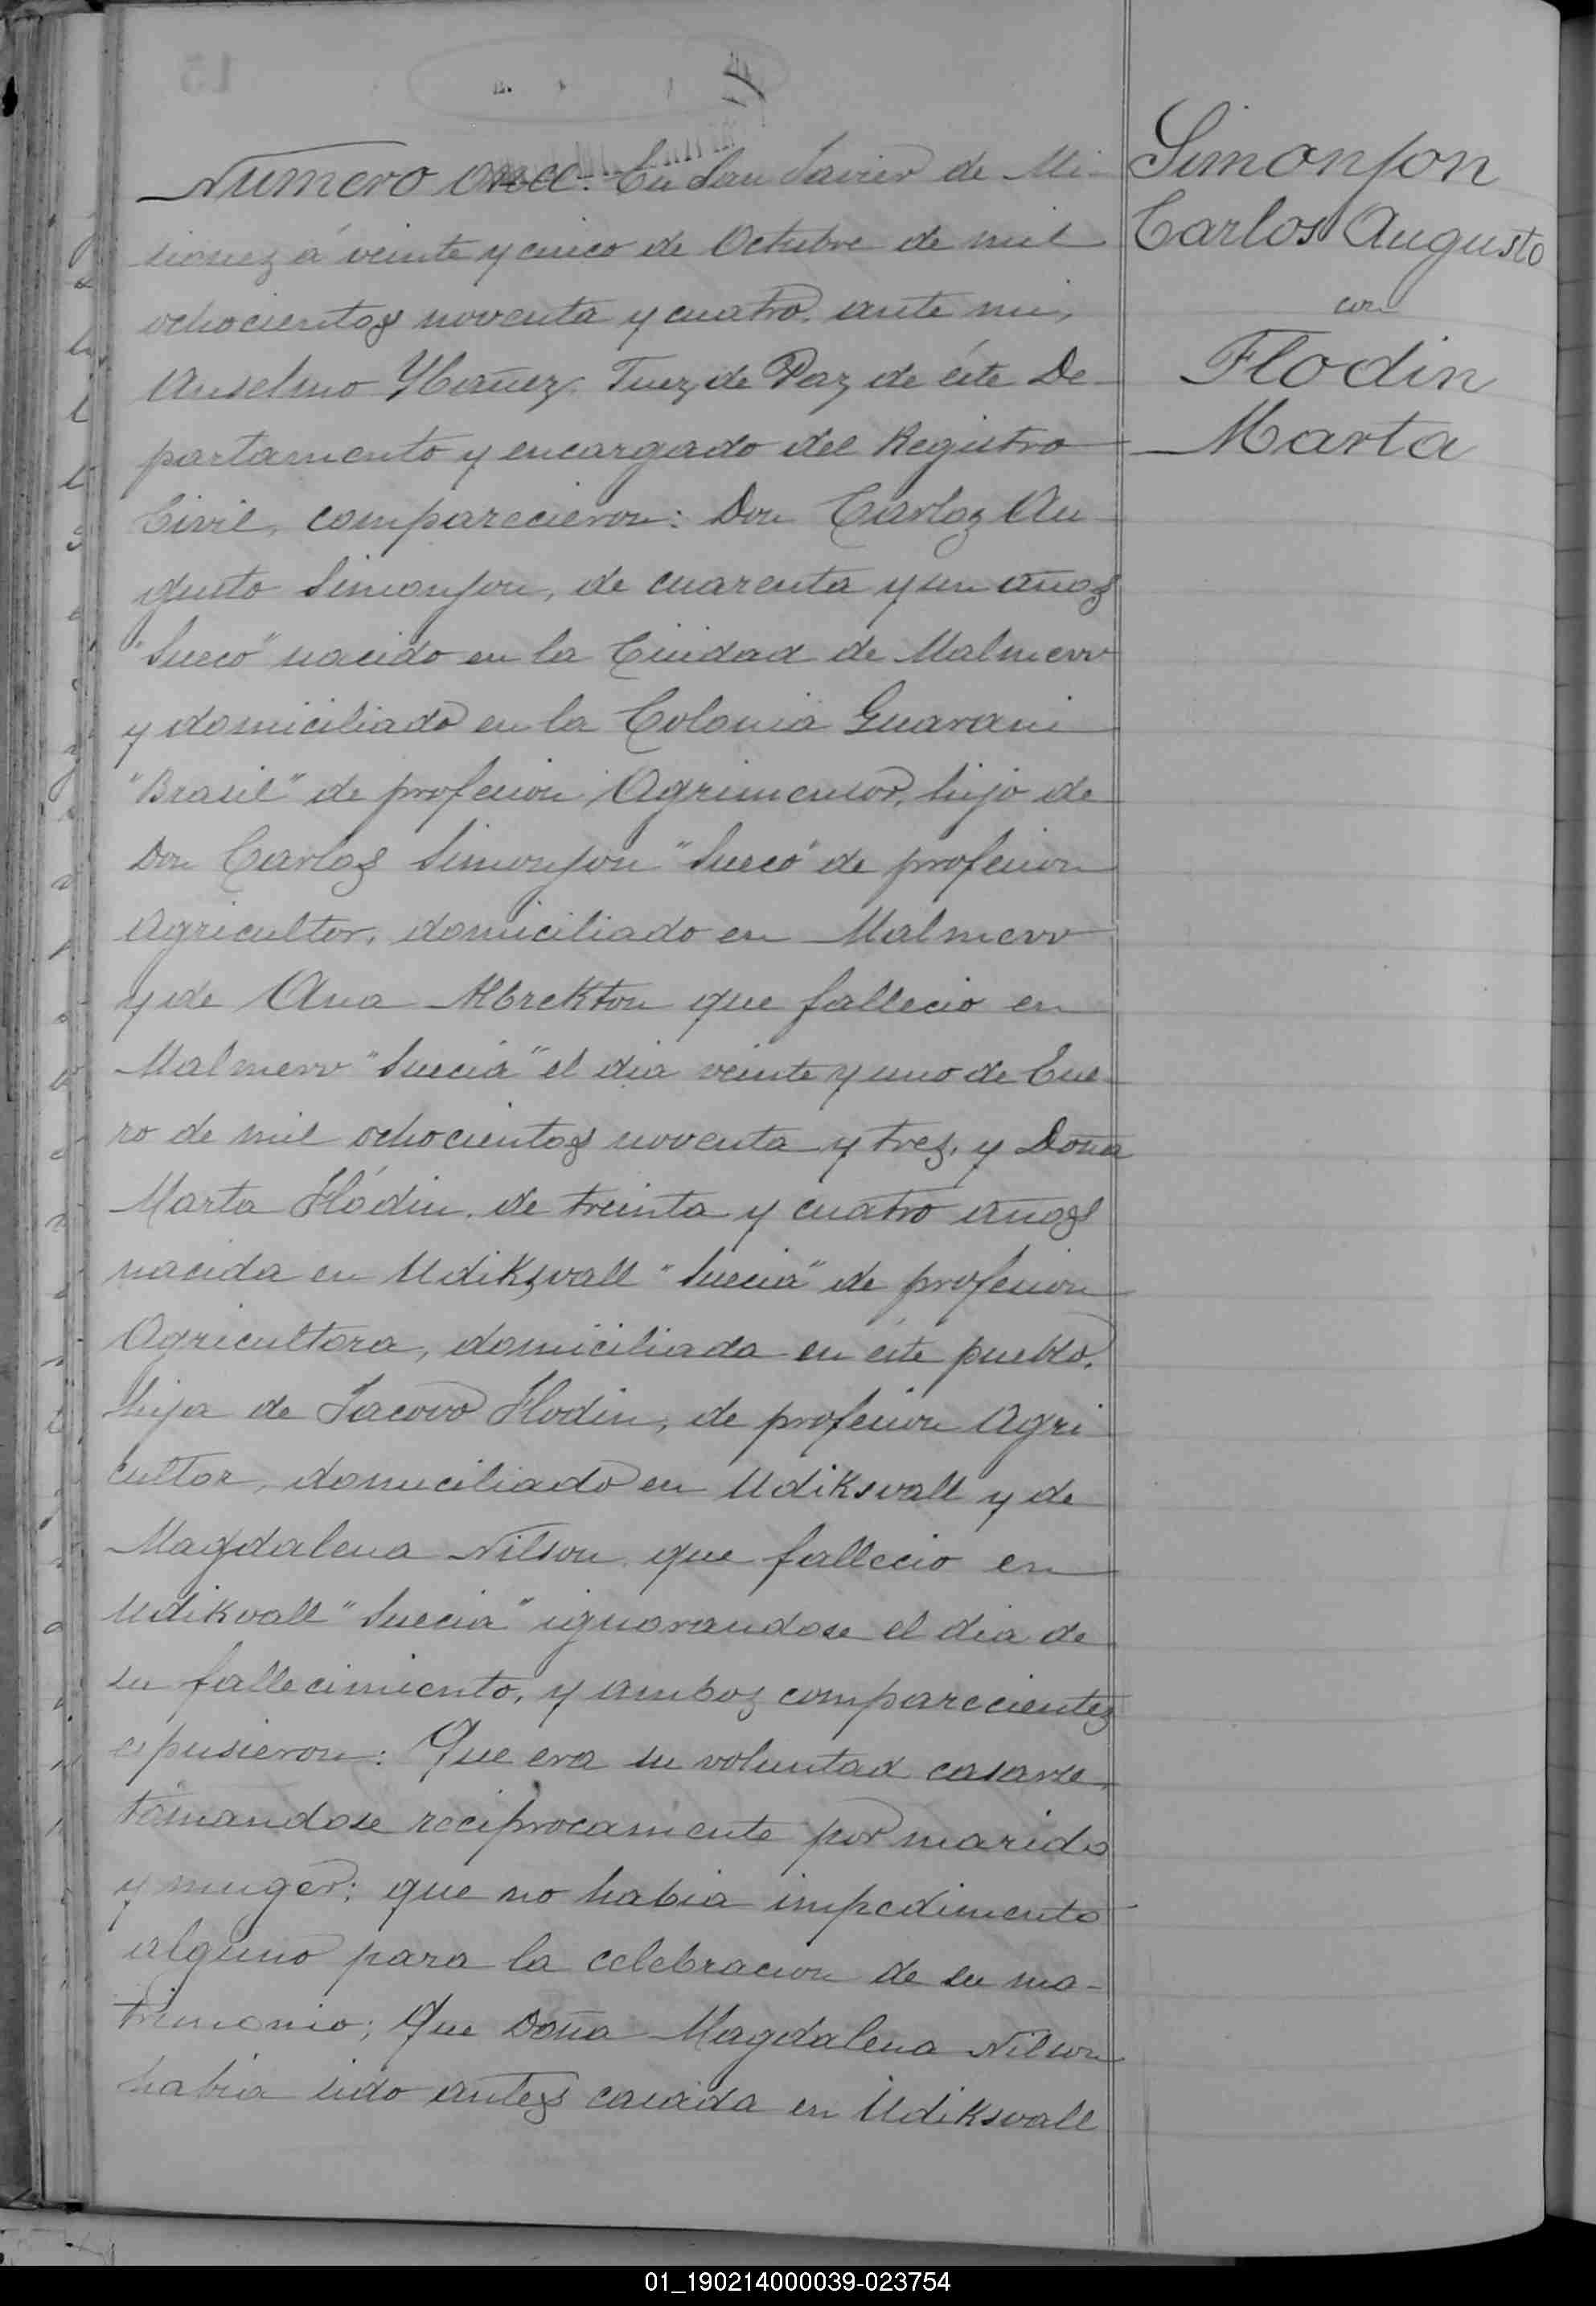 Numero once. En San Javier de Mi-
sionez á veinte y cinco de Octubre de mil
ochocientos noventa y cuatro, ante mi,
Anselmo Ybañez, Juez de Paz de éste De-
partamento y encargado del Registro
Civil, comparecieron: Don Carloz Au-
gusto Simonson, de cuarenta y un años
"Sueco" nacido en la Ciudad de Malmerv
y domiciliado en la Colonia Guarani
"Brasil" de profesion Agrimensor, hijo de
Don Carlos Simonson "Sueco" de profesion
Agricultor, domiciliado en Malmerv
y de Ana Albrekton que fallecio en
Malmerv "Suecia" el dia veinte y uno de Ene-
ro de mil ochocientos noventa y trez, y Doña
Marta Flódin, de treinta y cuatro años
nacida en Udikzvall "Suecia" de profesion
Agricultora, domiciliada en éste pueblo,
hija de Jacovo Flodin, de profesion Agri
cultor, domiciliado en Udiksvall y de
Magdalena Nilson que fallecio en
Udikvall "Suecia" ignorandose el dia de
su fallecimiento, y amboz comparecientez
espusieron: Que era su voluntad casarse,
tomandose reciprocamente por marido
y muger; que no habia impedimento
alguno para la celebracion de su ma-
trimonio; Que Doña Magdalena Nilson
habia sido antes casada en Udiksvall
Simonson
Carlos Augusto
con
Flodin
Marta
01_190214000039-023754